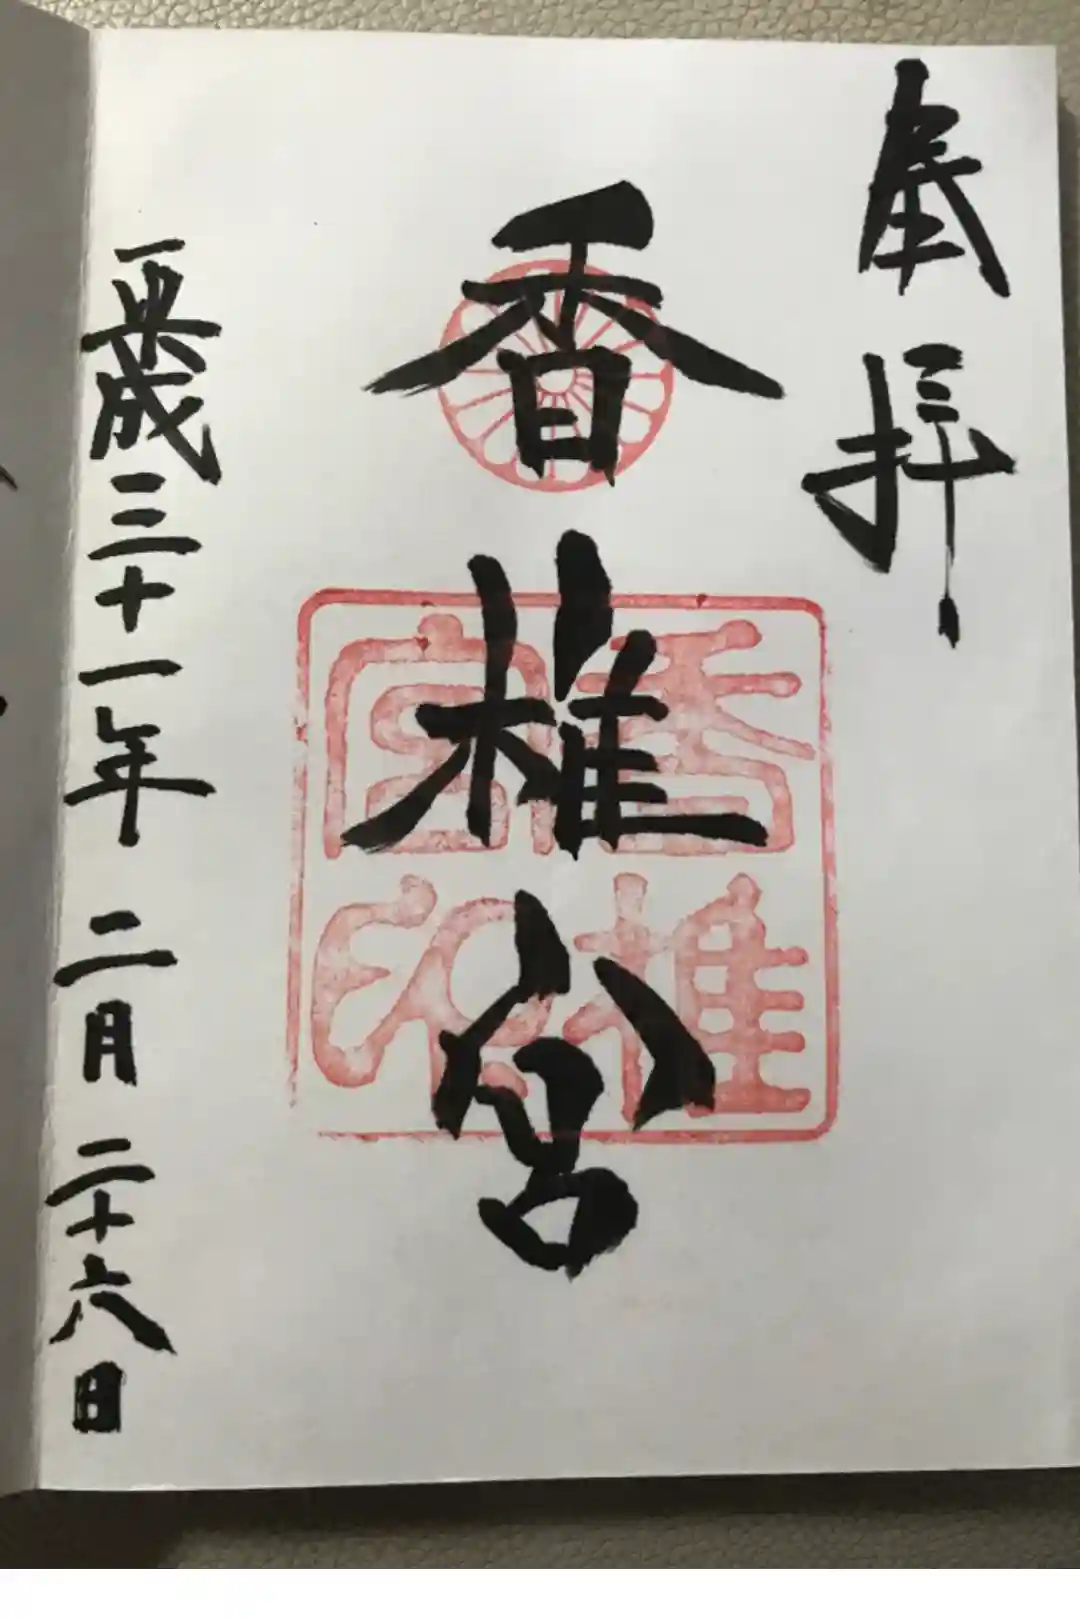 奉拝
香椎宮
香椎宮印
平成三十一年二月二十六日